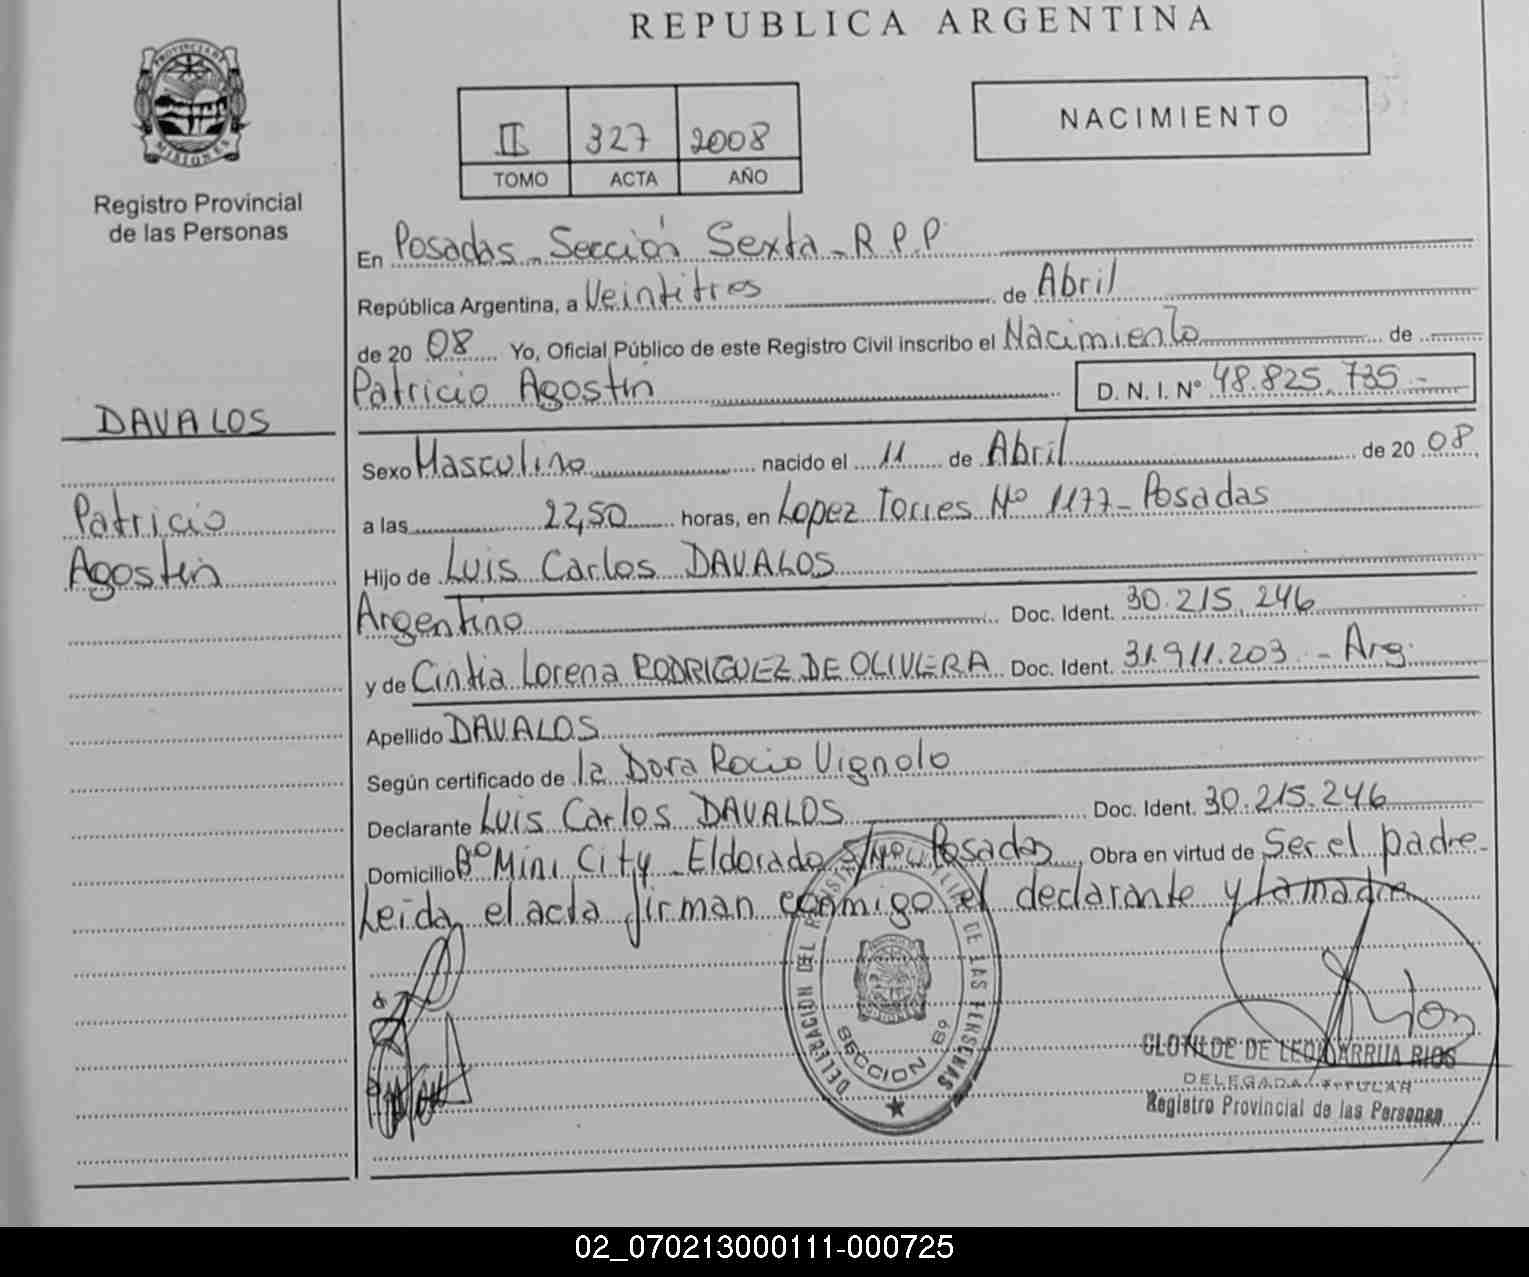 REPUBLICA ARGENTINA
PROVINCIA DE MISIONES
Registro Provincial
de las Personas
II 327 2008
TOMO ACTA AÑO
NACIMIENTO
En Posadas - Sección Sexta - R.P.P.
República Argentina, a Veintitres de Abril
de 20 08 Yo, Oficial Público de este Registro Civil inscribo el Nacimiento de
Patricio Agostin D.N.I. Nº 48.825.735.-
DAVALOS
Sexo Masculino nacido el 11 de Abril de 20 08
Patricio
a las 22,50 horas, en Lopez Torres Nº 1177 - Posadas
Agostin
Hijo de Luis Carlos DAVALOS
Argentino Doc. Ident. 30.215.246
y de Cintia Lorena RODRIGUEZ DE OLIVERA Doc. Ident. 31.911.203 - Arg.
Apellido DAVALOS
Según certificado de la Dora Rocio Vignolo
Declarante Luis Carlos DAVALOS Doc. Ident. 30.215.246
Domicilio Bº Mini City - Eldorado S/Nº Posadas, Obra en virtud de Ser el padre-
Leida el acta firman conmigo el declarante y la madre
DELEGACION DEL DE LAS PERSONAS
SECCION 6º
CLOTILDE DE LEON ARRUA RIOS
DELEGADA TITULAR
Registro Provincial de las Personas
02_070213000111-000725